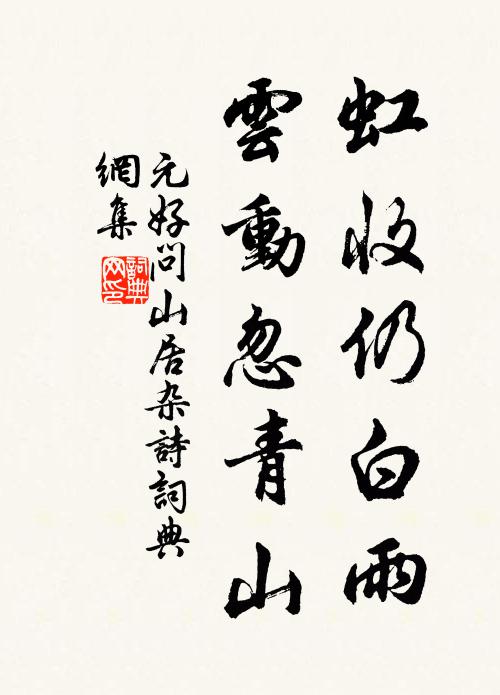 虹收仍白雨
雲動忽青山
元好问山居杂詩詞典
網集
詞典
网印